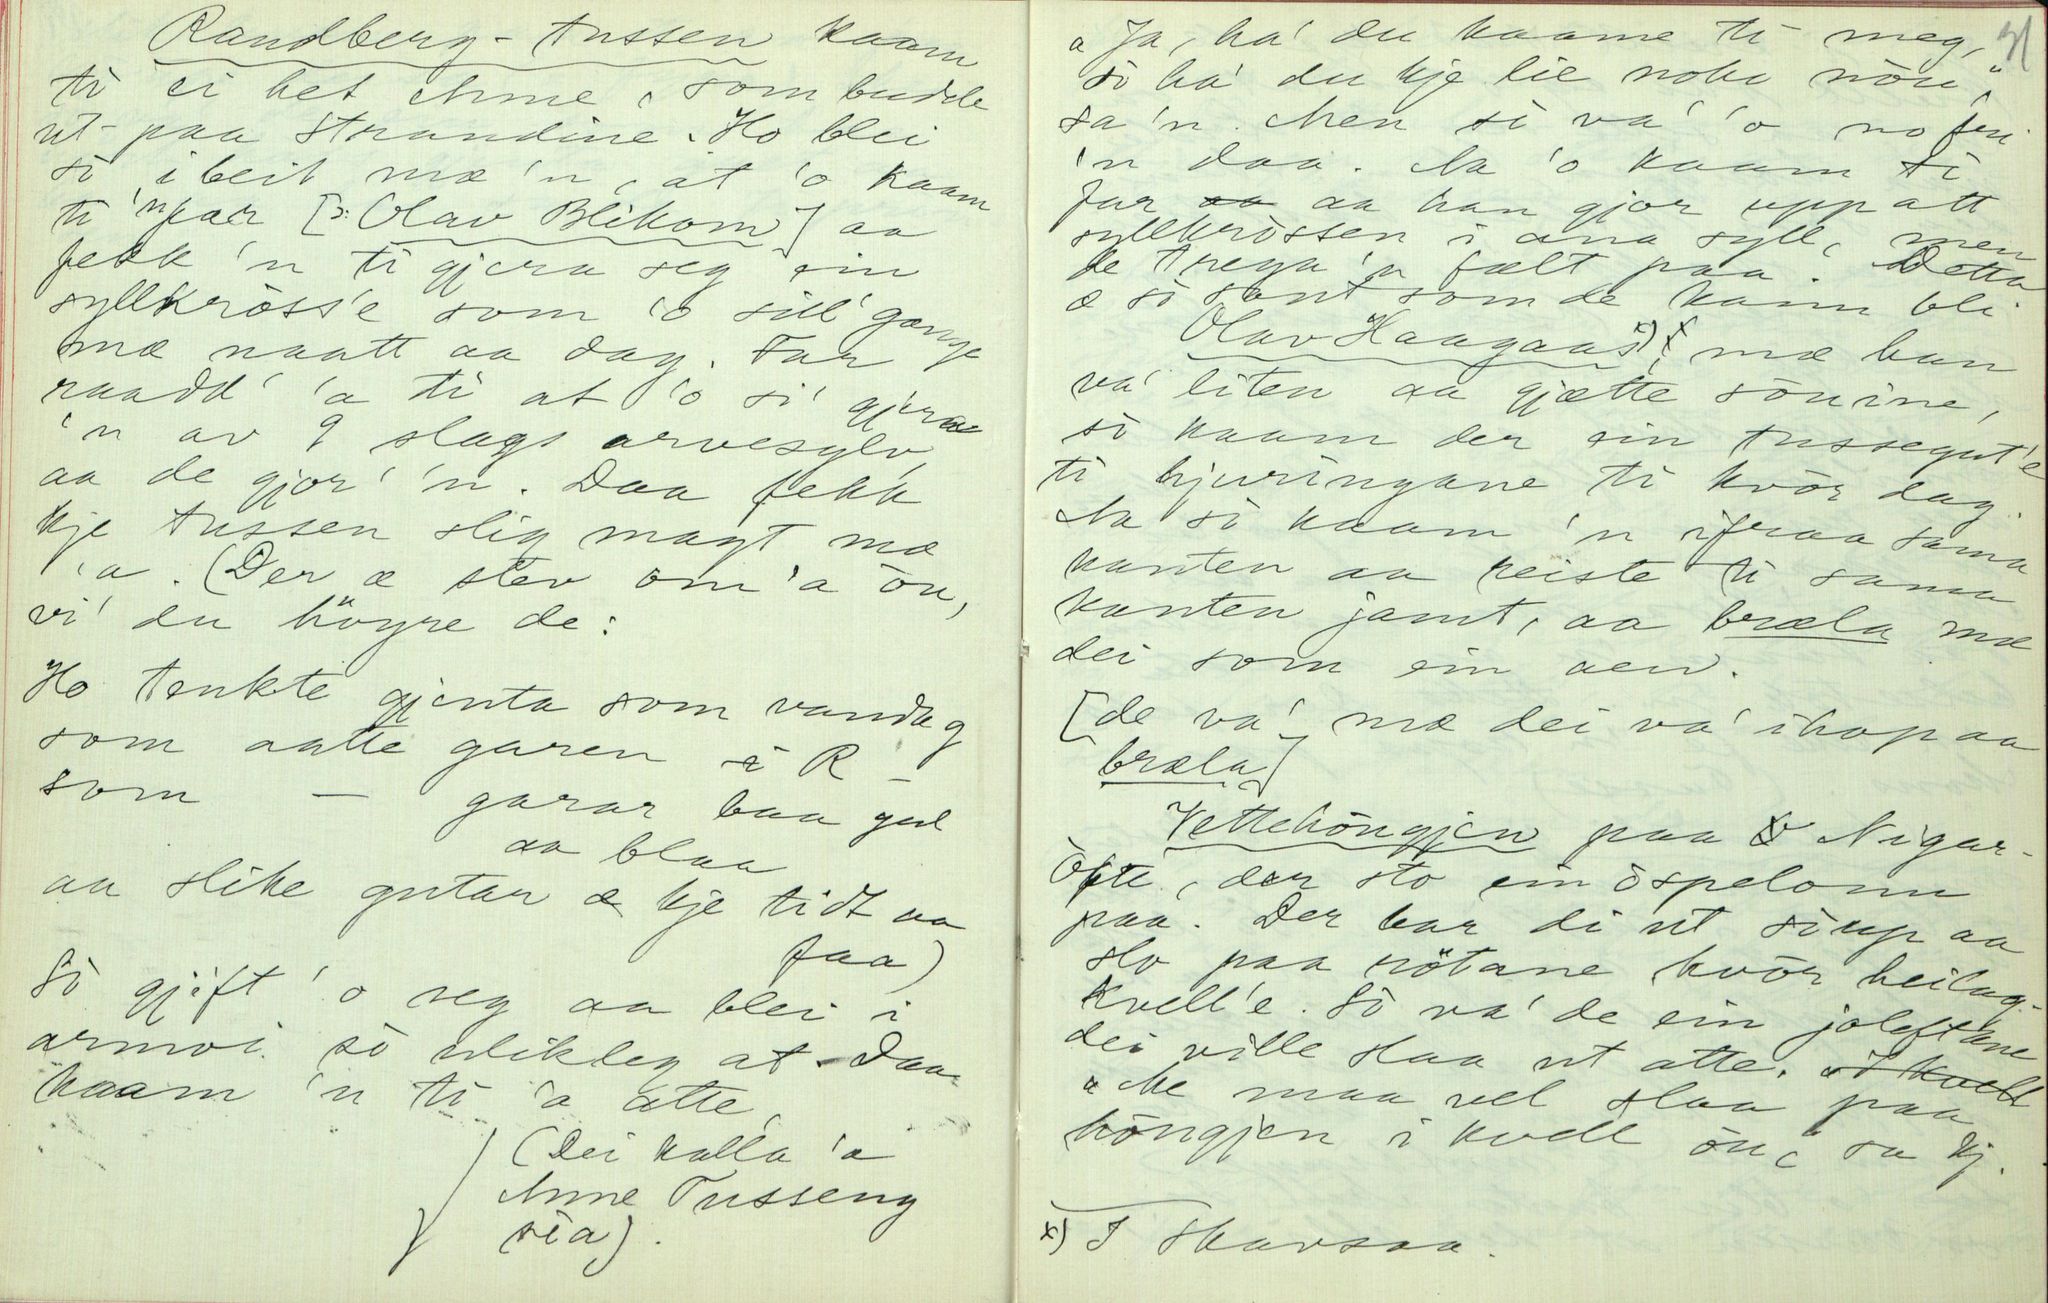 Randberg-tussen kaam
ti ei het Anne, som budde
ut-paa Strandine. Ho blei
sò i beit mæ 'n, at 'o kaam
ti 'n far [ɔ: Olav Blikom] aa
fekk 'n ti gjera seg ein
syllkròss'e som 'o sill' gange
mæ naatt aa dag. Far
raadd' 'a ti at 'o si' gjera
'n av 9 slags arvesylv,
aa de gjor' 'n. Daa fekk
kje tussen slig magt mæ
'a. (Der æ stev om 'a òu,
vi' du höyre de:
Ho tenkte gjenta som vandag
som aatte garen i R –
som – garar baa gul
aa blaa
aa slike gutar æ kje tidt aa
faa)
Sò gjift' 'o seg aa blei i
armoi sò ulikleg at. Daa
kaam 'n ti 'a atte,
(Dei kalla 'a
Anne Tusseng
sia).
31
"Ja, ha' du kaame ti meg,
sò ha' du kje lie noko nòu",
sa 'n. Men sò va' 'o no fri
'n daa. Aa 'o kaam ti
far aa aa han gjor upp att
syllkròssen i ana syll, men
de trega 'n fælt paa. Detta
æ sò sant som de kann bli.
Olav Haagaas x), mæ han
va' liten aa gjætte sòuine,
sò kaam der ein tussegut'e
ti hjuringane ti kvòr dag.
Aa sò kaam 'n ifraa sama
kanten aa reiste ti sama
kanten jamt, aa bræla mæ
dei som ein aen.
[de va', mæ dei va' ihop aa
bræla]
Vettehòugjen paa Nigar-
Òfte, der sto ein òspelonn
paa. Der bar di ut sòup aa
slo paa rötane kvòr heilag-
kvell'e. Sò va' de ein joleftane
dei ville slaa ut atte. sò kvell
"Me maa vel slaa paa
hòugjen i kvell òu, sa kj.
x) I Skavsaa.